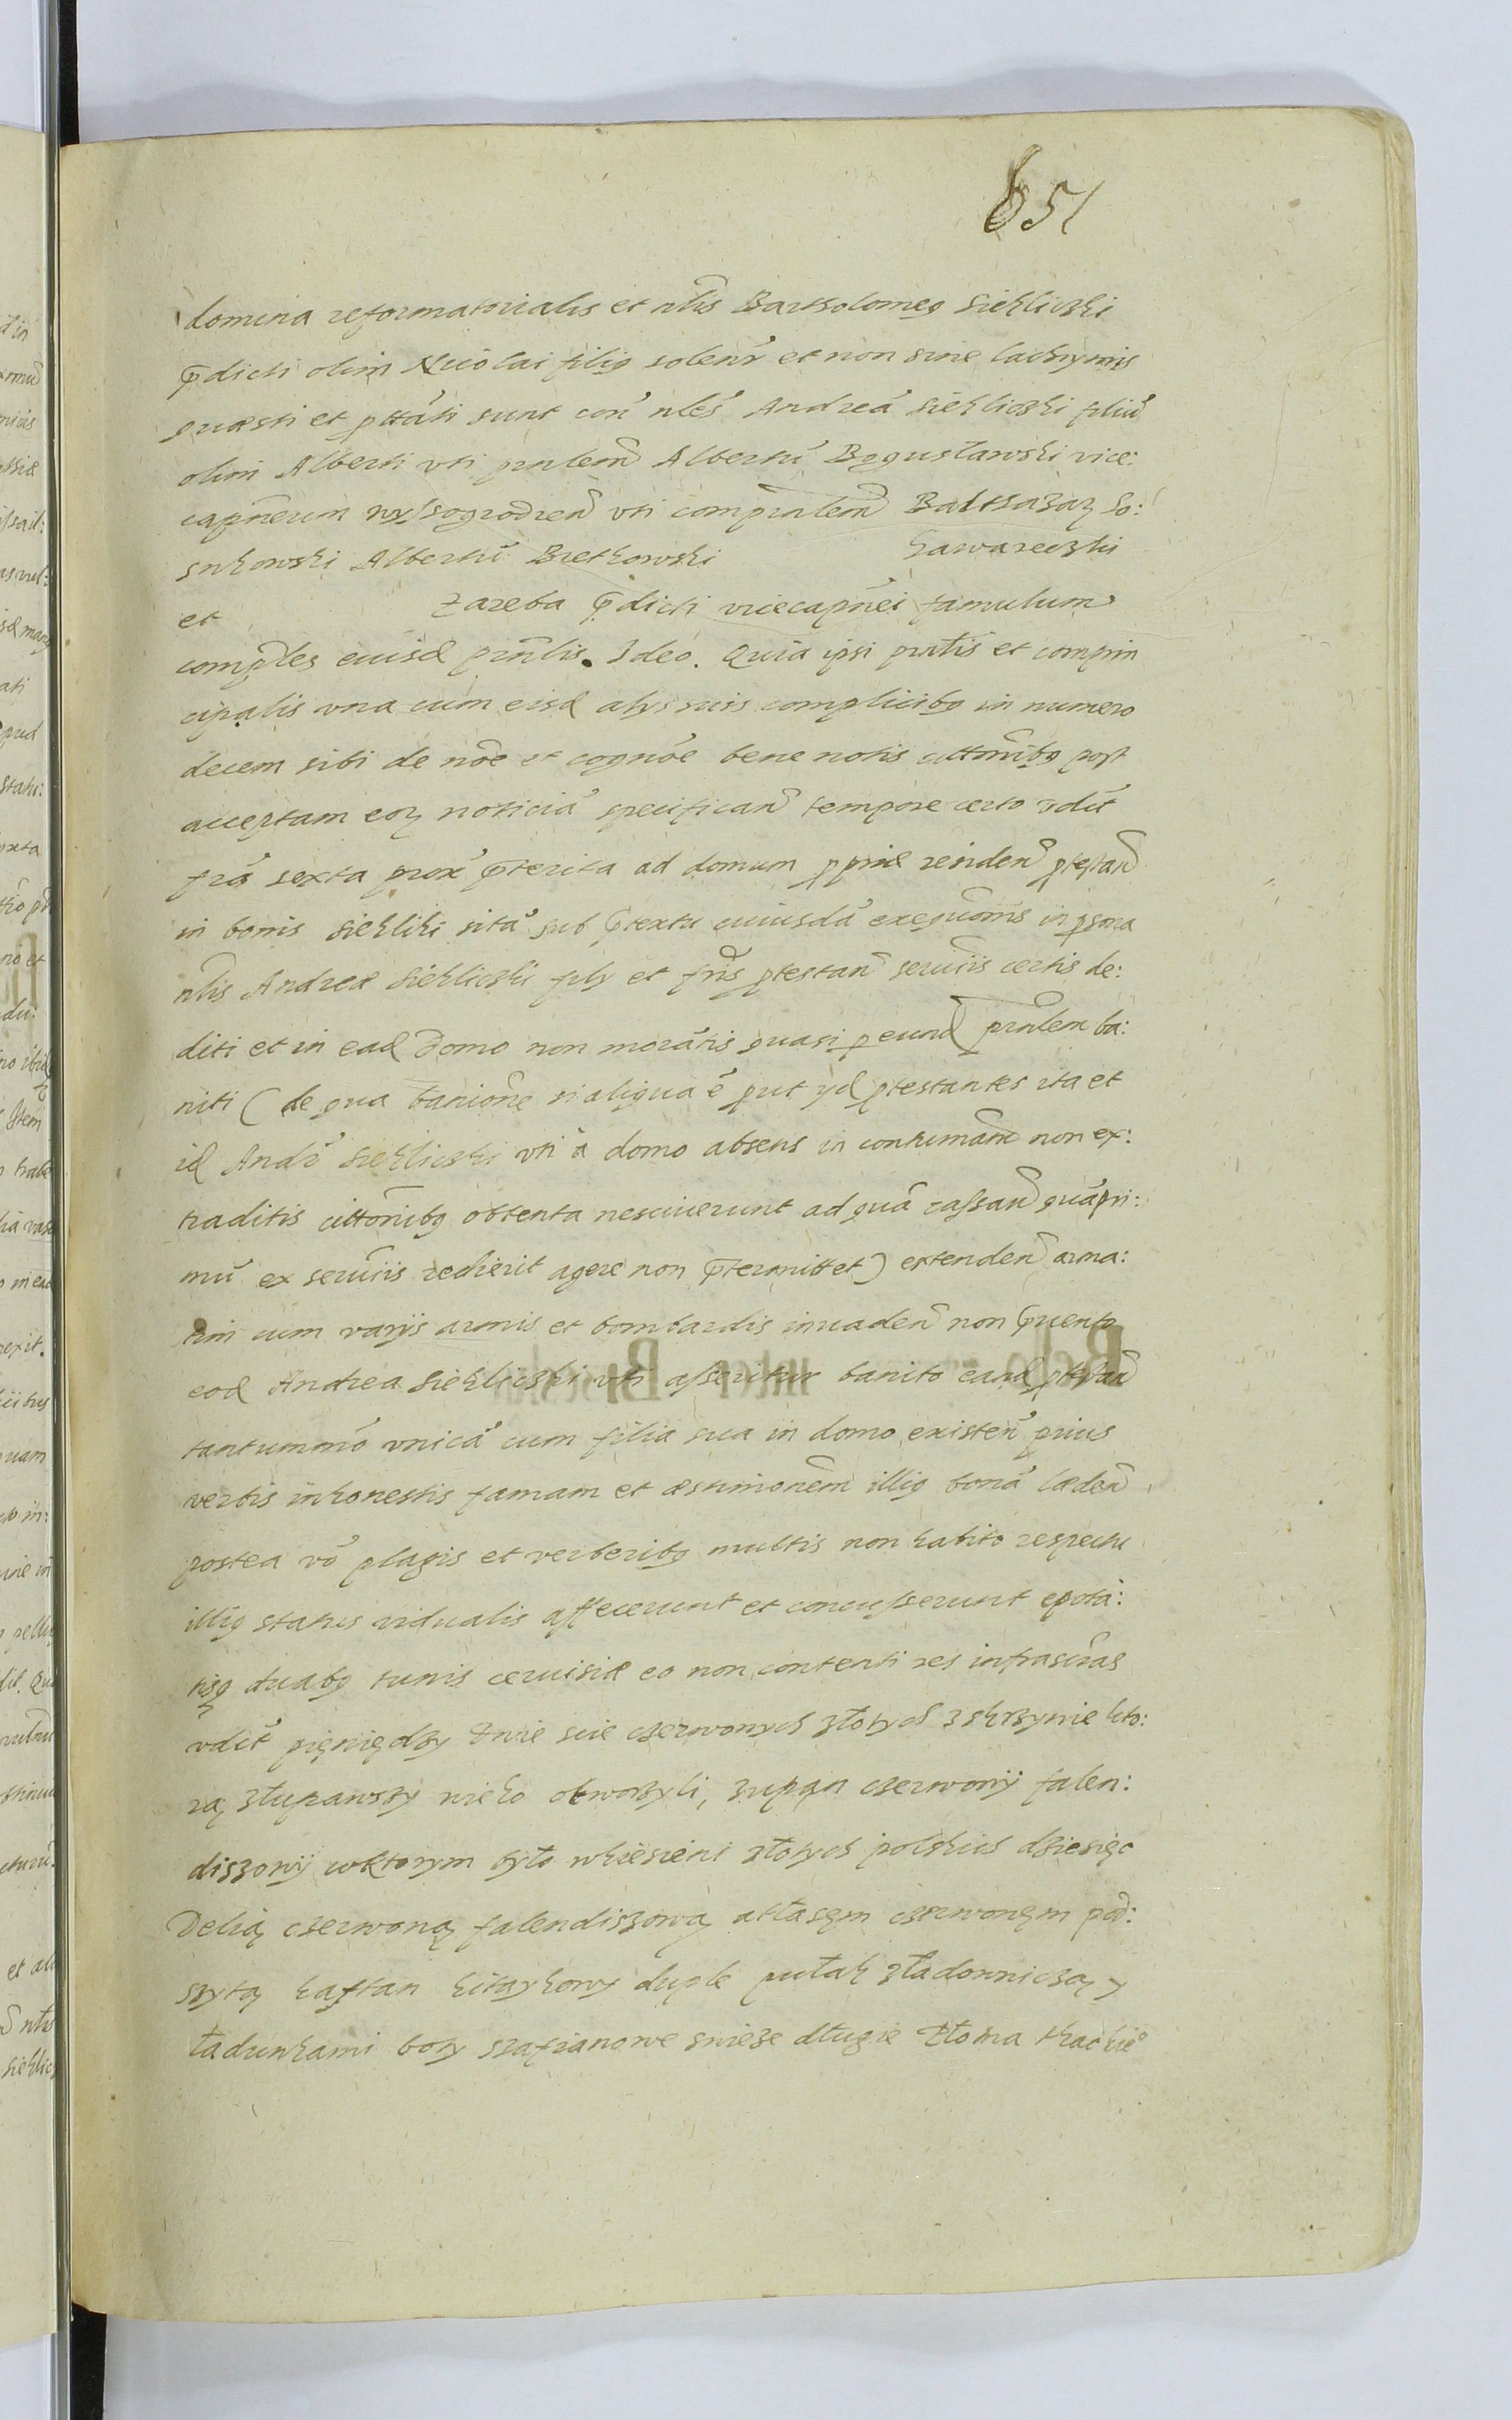 651
domina reformatorialis et nłis Bartholomeg Siekliczki
p̄dicti olim Nicolai filig solenr̄ et non sine lachrymis
quæsti et pttāti sunt con̄ nłes Andreā Siekliczki filiū
olim Alberti vti prnlem̄ Albertū Bogusławski vice:
capn̄eum wyssogrodien̄ vti comprnlem̄ Balthazaꝝ So:
snkowski Albertū Bretkowski kawareczki
et zareba p̄dicti vicecapn̄ei famulum
compl̄es eiusd prn̄lis. Ideo. Quia ipsi prnlīs et comprin
cipalis vna cum eisd alys suis complicibg in numero
decem sibi de nōe et cognōe bene notis cittōnibg post
acceptam eoꝝ noticiā specifican̄ tempore certo vdēt
frā sexta prox̄ p̄terita ad domum ppriæ residen̄ ptestan̄
in bonis Siekliki sitā sub p̄textu cuiusdā exequōnis in psona
nłis Andreæ Siekliczki fily et frīs ptestan̄ seruiīs certis de:
diti et in ead domo non morātis quasi p eund prn̄lem ba:
niti (de qua banione si aliqua ē put yd ptestantes ita et
id Andr̄ Siekliczki vti a domo absens in contumām non ex:
traditis cittōnibg obtenta nesciuerunt ad quā cassan̄ quāpri:
mū ex seruiīs redierit agere non p̄termittet) extenden̄ arma:
tim cum varijs armis et bombardis inuaden̄ non inuento
eod Andrea Siekliczki vti asseritur banito eand ptestan̄
tantummō vnicā cum filia sua in domo existen̄ prius
verbis inhonestis famam et æstimonem̄ illig bonā læden̄
postea vō plagis et verberibg multis non habito respectu
illig status vidualis affecerunt et concusserunt epotā:
tisq duabg tunis ceruisiæ eo non contenti res infrascrās
vdēt pięniędzy dwie scie czerwonych złotych z skrzynie kto:
rą złupawszy wieko otworzyli, zupan czerwonÿ falen:
diszowÿ wktorym było wkieszeni złotych polskich dziesięc
Delią czerwoną falendiszową atłasęm czerwonęm pod:
szytą kaftan kitaykowy duple pułak z ładowniczą y
ładunkami boty szafianowe swieze długie